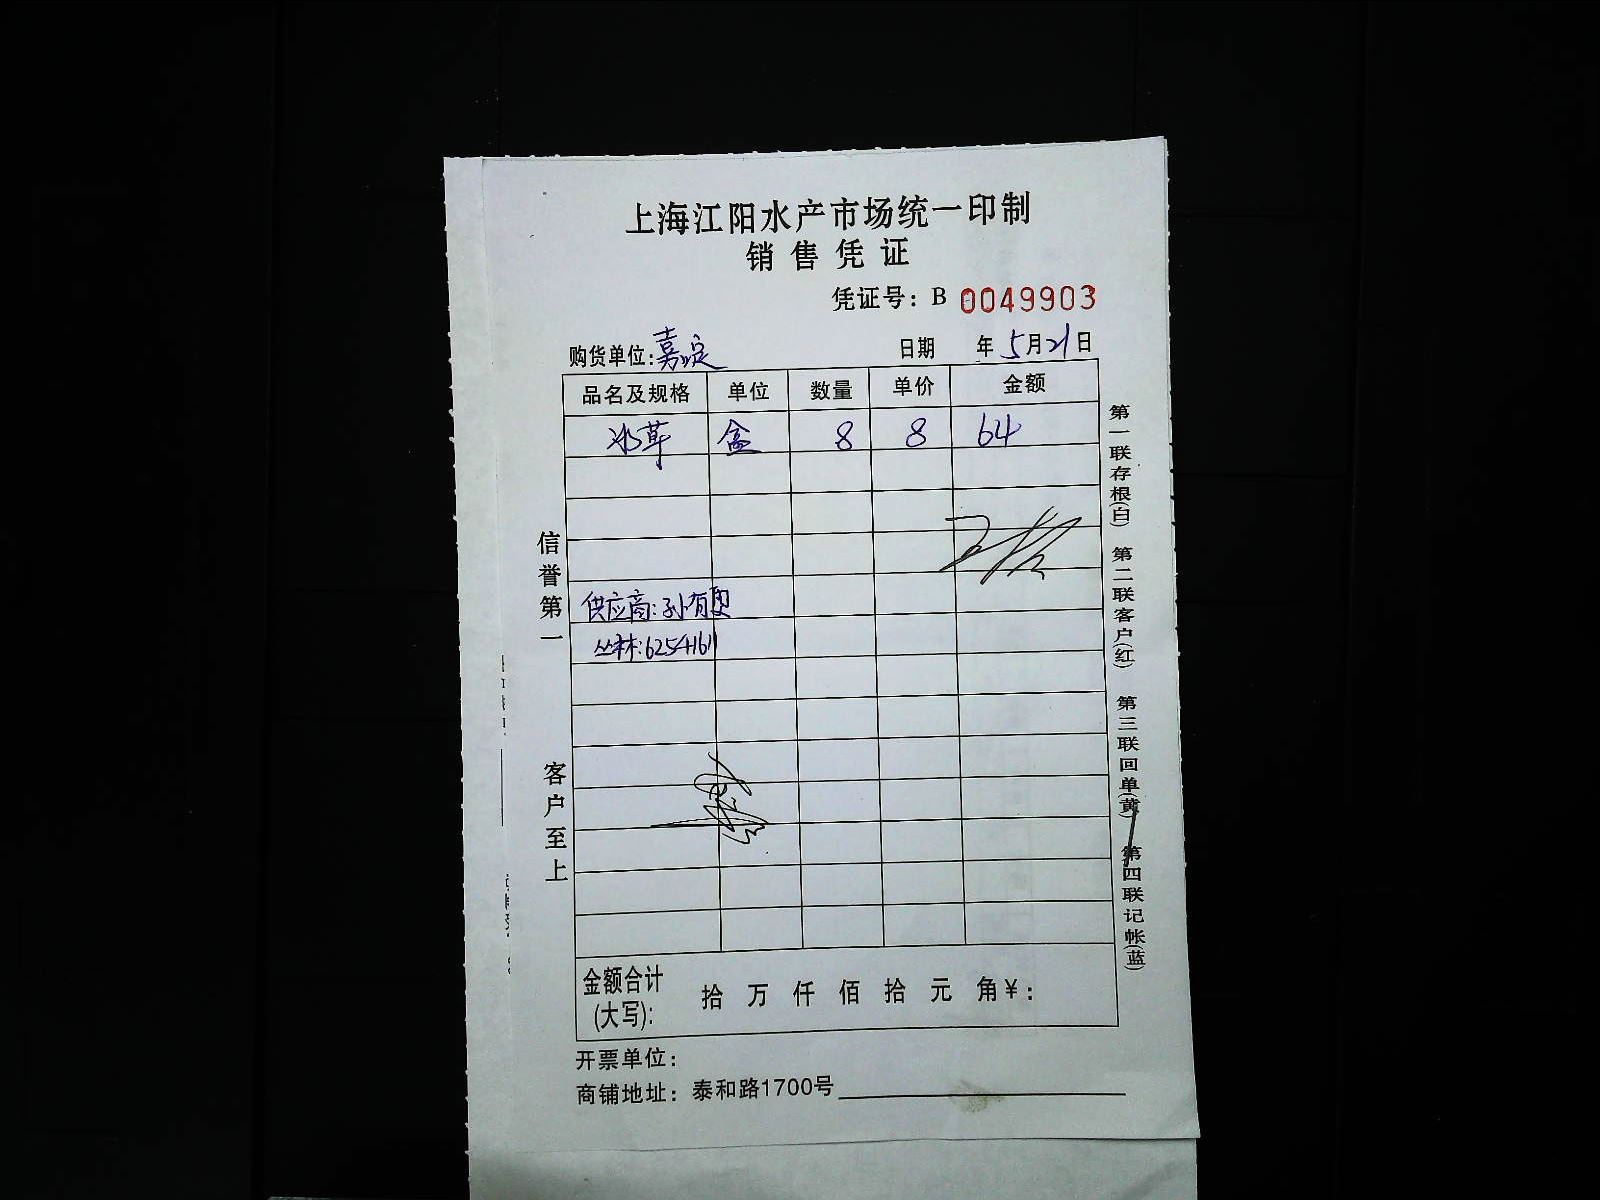 上海江阳水产市场统一印制
销售凭证
凭证号：B 0049903
购货单位：嘉定 日期 年5月21日
品名及规格 单位 数量 单价 金额
冰草 盒 8 8 64
供应商：孙有
丛林：6254161
金额合计(大写)： 拾 万 仟 佰 拾 元 角￥：
开票单位：
商铺地址：泰和路1700号
信誉第一
客户至上
第一联存根(白) 第二联客户(红) 第三联回单(黄) 第四联记帐(蓝)